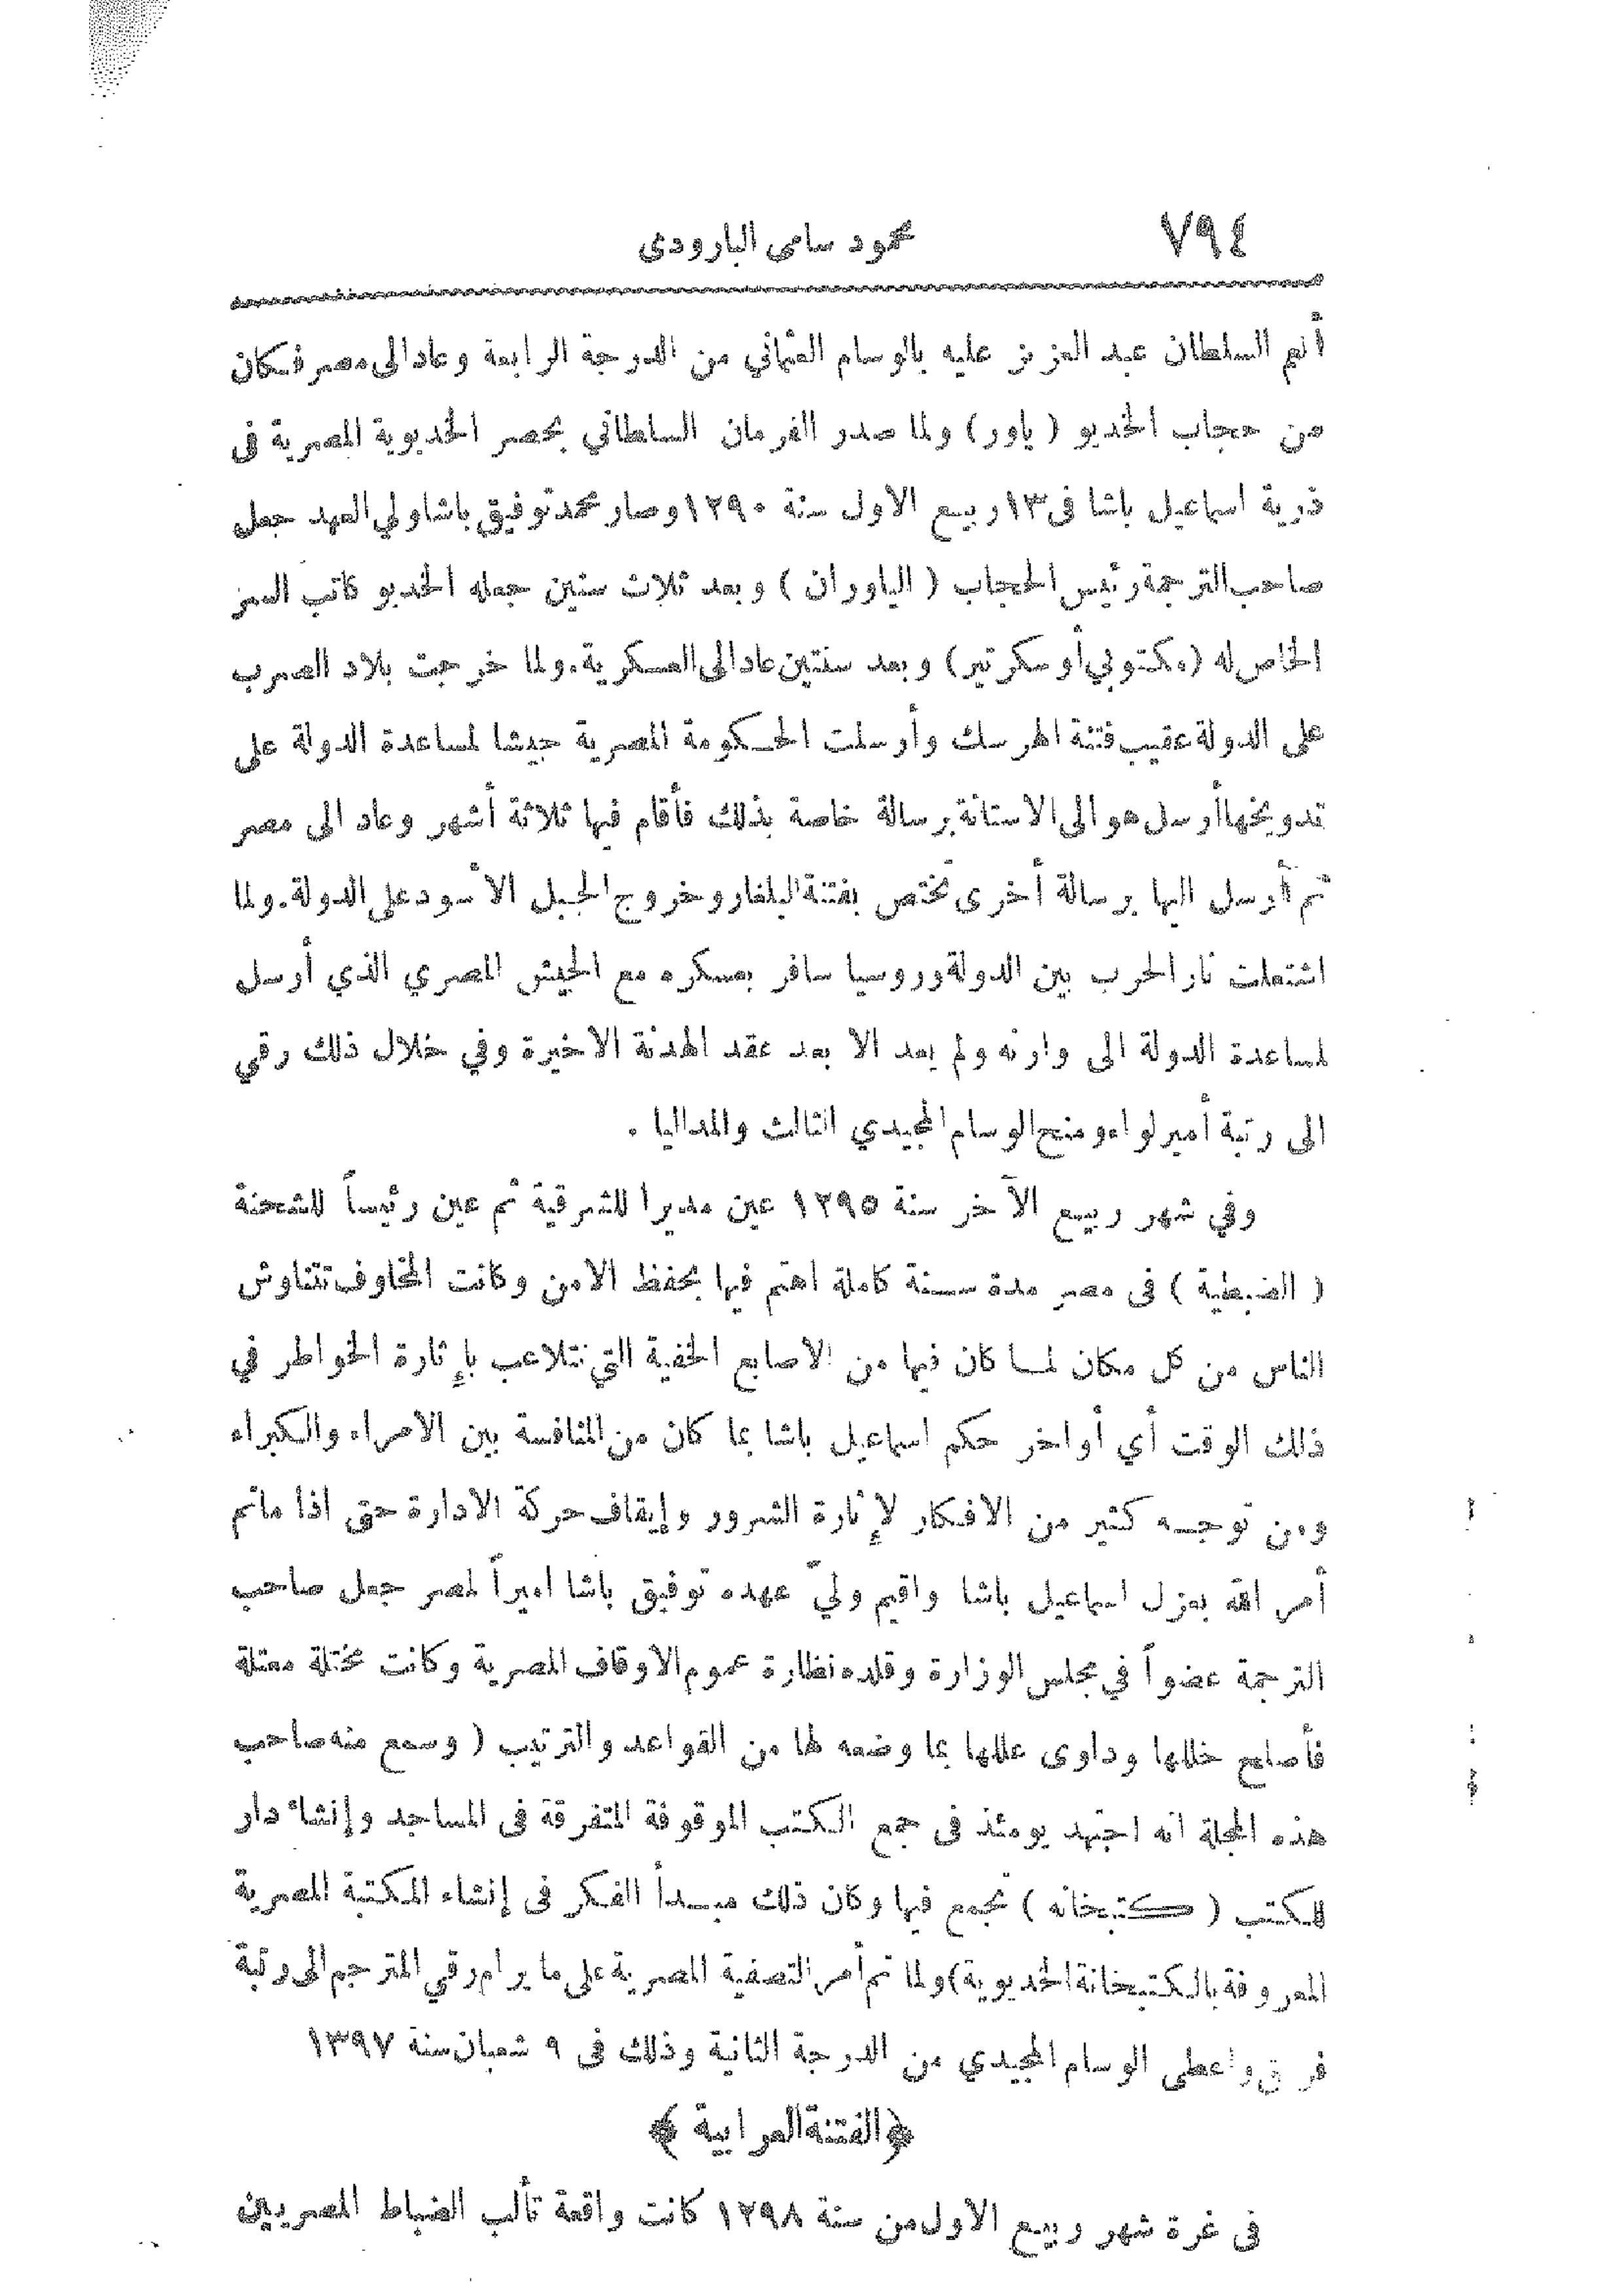 ٧٩٤ محمود سامى البارودى
أنعم السلطان عبد العزيز عليه بالوسام العثماني من الدرجة الرابعة وعاد الى مصر فكان
من حجاب الخديو ( ياور ) ولما صدر الفرمان السلطاني بحصر الخديوية المصرية فى
ذرية اسماعيل باشا فى ١٣ ربيع الاول سنة ١٢٩٠ وصار محمد توفيق باشا ولي العهد جعل
صاحب الترجمة رئيس الحجاب ( الياوران ) وبعد ثلاث سنين جعله الخديو كاتب السر
الخاص له (مكتوبي أو سكرتير) وبعد سنتين عاد الى العسكرية. ولما خرجت بلاد الصرب
على الدولة عقيب فتنة الهرسك وأرسلت الحكومة المصرية جيشا لمساعدة الدولة على
تدويخها أرسل هو الى الاستانة برسالة خاصة بذلك فأقام فيها ثلاثة أشهر وعاد الى مصر
ثم أرسل اليها برسالة أخرى تختص بفتنة البلغار وخروج الجبل الأسود على الدولة. ولما
اشتعلت نار الحرب بين الدولة وروسيا سافر بعسكره مع الجيش المصري الذي أرسل
لمساعدة الدولة الى وارنه ولم يعد الا بعد عقد الهدنة الاخيرة وفي خلال ذلك رقي
الى رتبة أمير لواء ومنح الوسام المجيدي الثالث والمداليا .
وفي شهر ربيع الآخر سنة ١٢٩٥ عين مديرا للشرقية ثم عين رئيساً للشحنة
( الضبطية ) فى مصر مدة سنة كاملة اهتم فيها بحفظ الامن وكانت المخاوف تتناوش
الناس من كل مكان لما كان فيها من الاصابع الخفية التي تتلاعب بإثارة الخواطر في
ذلك الوقت أي أواخر حكم اسماعيل باشا بما كان من المنافسة بين الامراء والكبراء
ومن توجه كثير من الافكار لإثارة الشرور وإيقاف حركة الادارة حتى اذا ماتم
أمر الله بعزل اسماعيل باشا واقيم وليّ عهده توفيق باشا اميراً لمصر جعل صاحب
الترجمة عضواً في مجلس الوزارة وقلده نظارة عموم الاوقاف المصرية وكانت مختلة معتلة
فأصلح خللها وداوى عللها بما وضعه لها من القواعد والترتيب ( وسمع منه صاحب
هذه المجلة انه اجتهد يومئذ فى جمع الكتب الموقوفة المتفرقة فى المساجد وإنشاء دار
للكتب ( كتبخانه ) تجمع فيها وكان ذلك مبدأ الفكر فى إنشاء المكتبة المصرية
المعروفة بالكتبخانة الخديوية) ولما تم أمر التصفية المصرية على ما يرام رقي المترجم الى رتبة
فريق واعطى الوسام المجيدي من الدرجة الثانية وذلك فى ٩ شعبان سنة ١٣٩٧
﴿ الفتنة العرابية ﴾
فى غرة شهر ربيع الاول من سنة ١٢٩٨ كانت واقعة تألب الضباط المصريين